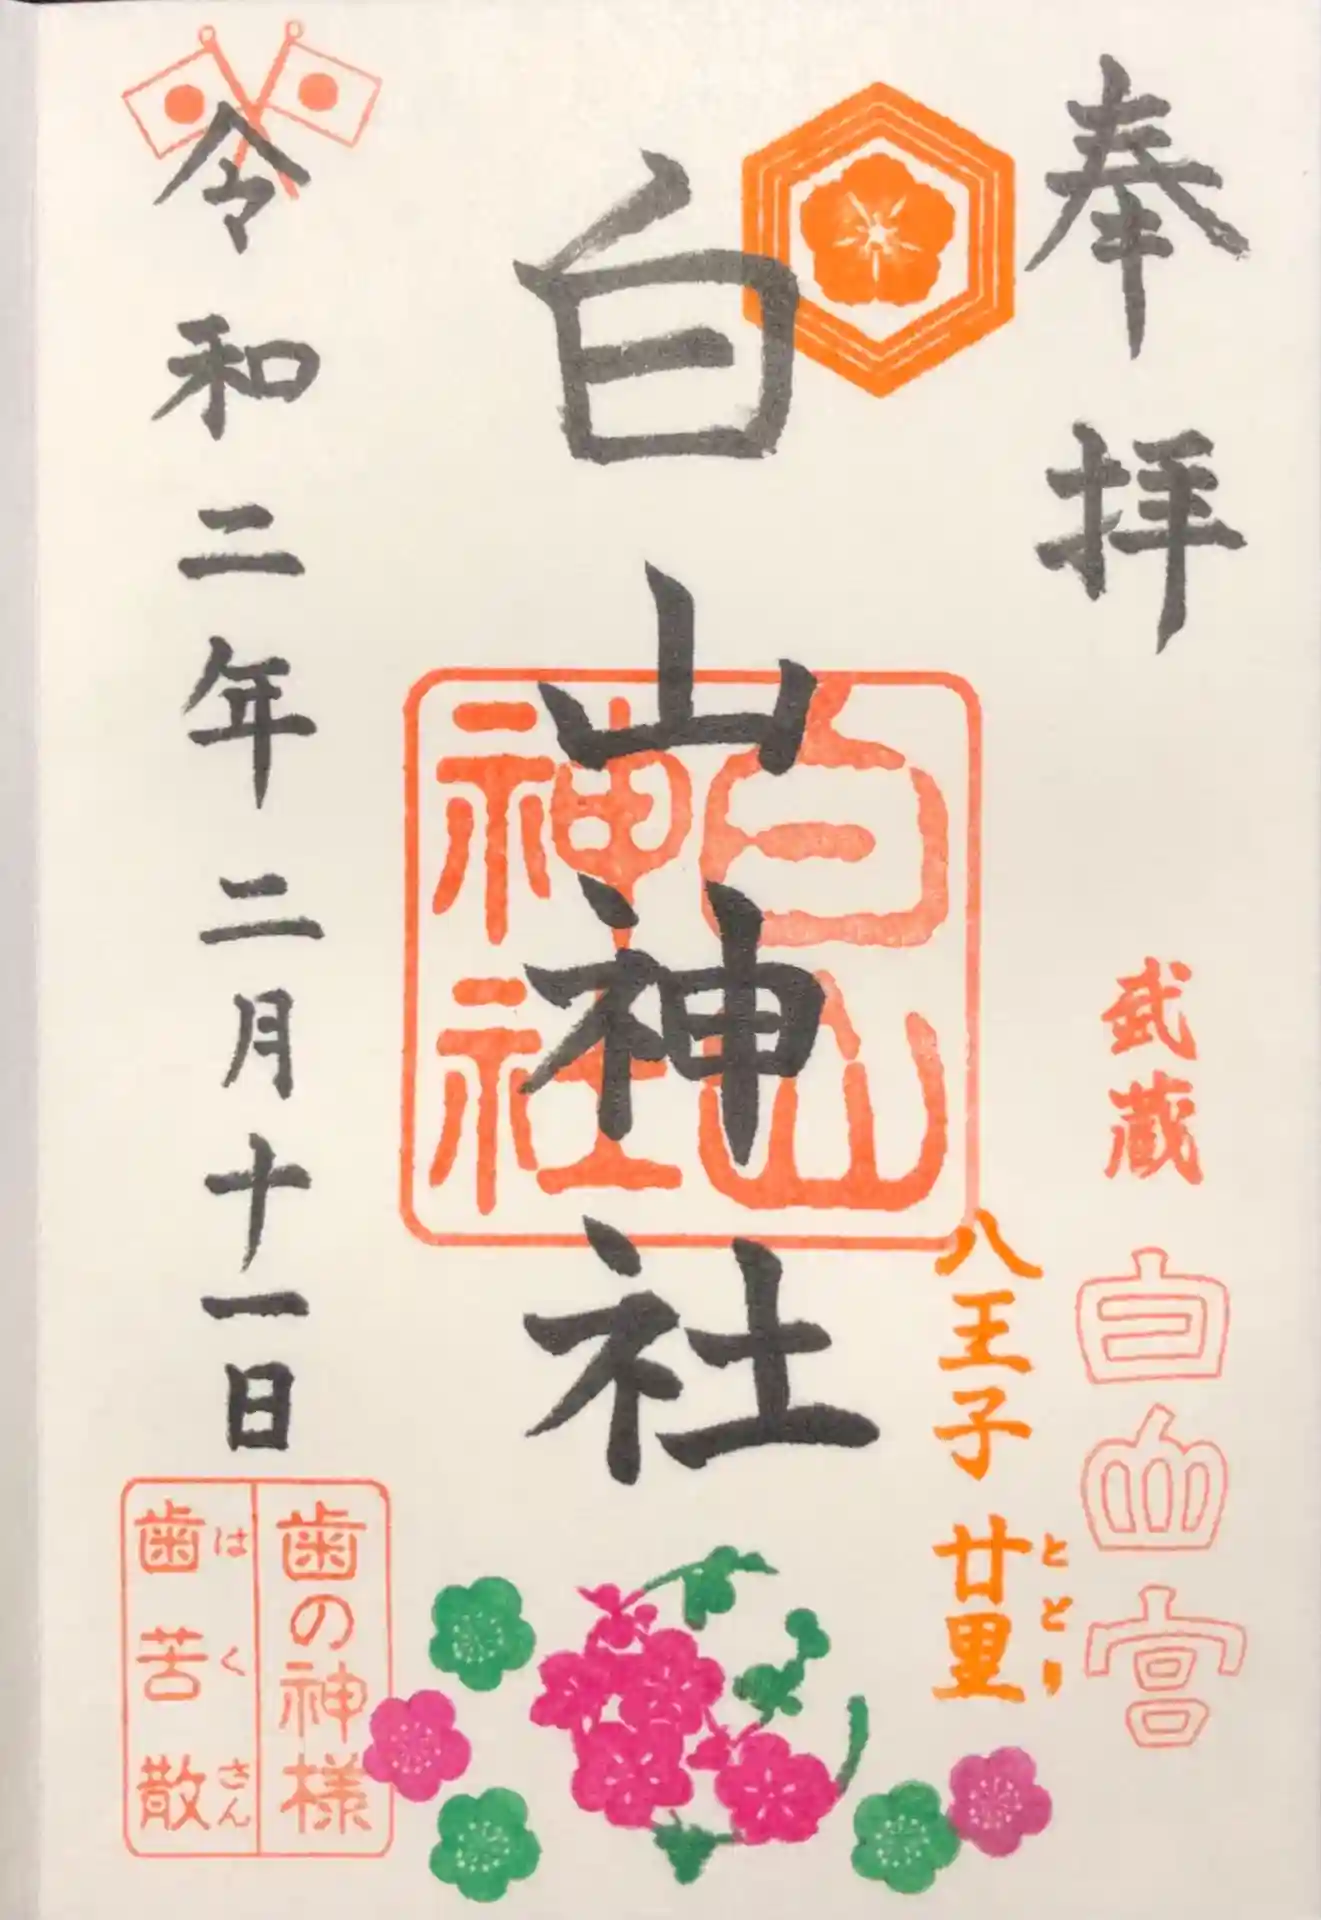 奉拝
武蔵
白山宮
八王子 廿里
とどり
白山神社
白山
神社
令和二年二月十一日
歯の神様
はくさん
歯苦散